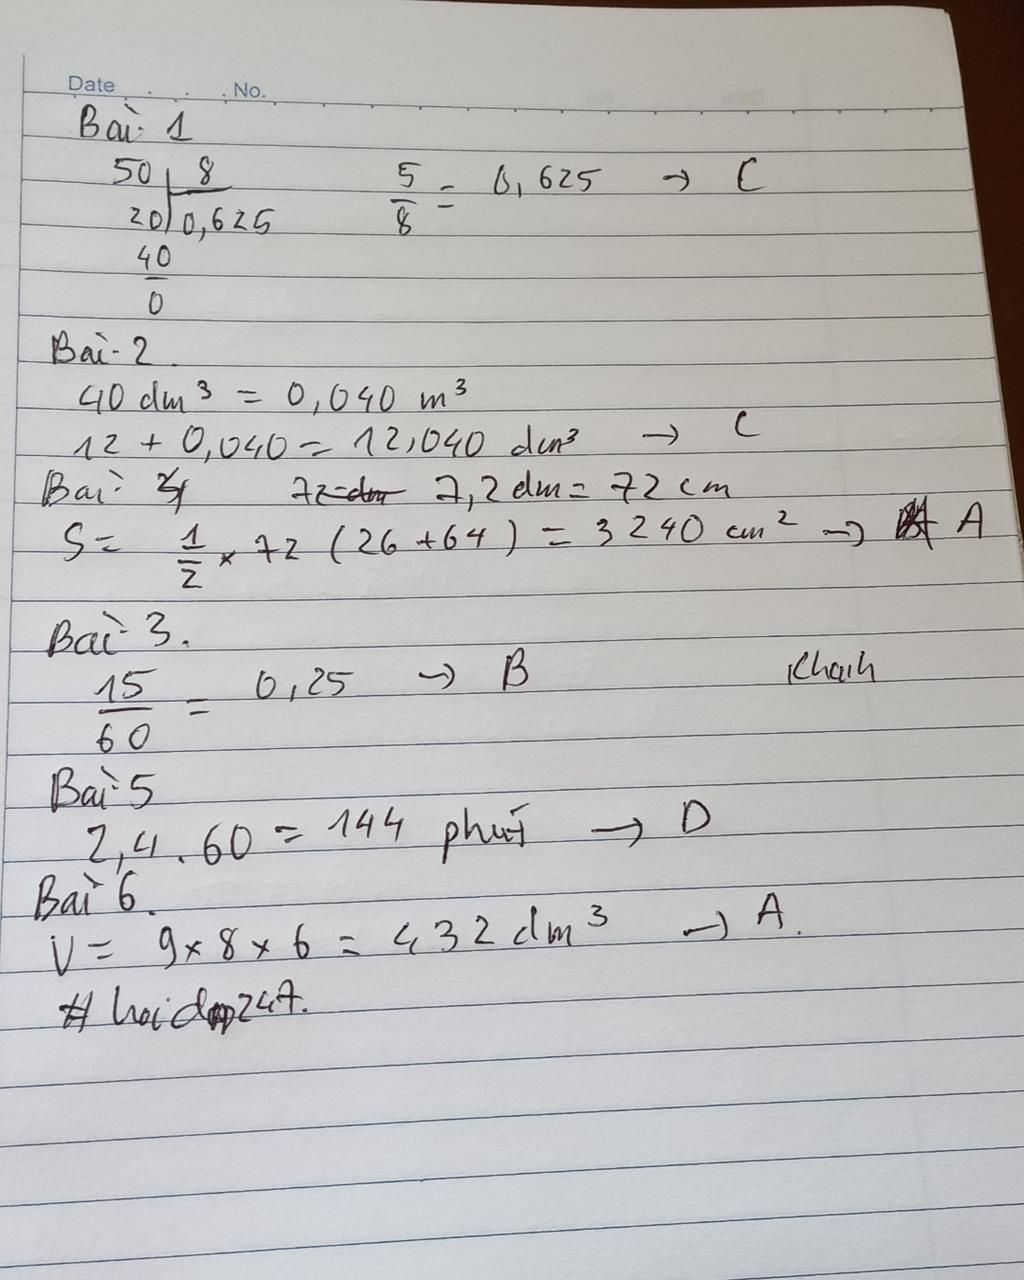 Date . . . . No.
Bài 1
50 8
20 0,625
40
0
5/8 = 0,625 → C
Bài 2.
40 dm³ = 0,040 m³
12 + 0,040 = 12,040 dm³ → C
Bài 4 7,2 dm = 72 cm
S = 1/2 × 72 (26 + 64) = 3240 cm² → A
Bài 3.
15/60 = 0,25 → B
Khanh
Bài 5
2,4 . 60 = 144 phút → D
Bài 6.
V = 9 × 8 × 6 = 432 dm³ → A.
# hoidap247.